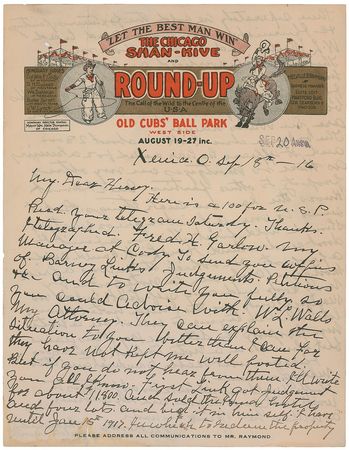 LET THE BEST MAN WIN
THE CHICAGO
SHAN-KIVE
AND
ROUND-UP
The Call of the Wild to the Centre of the
U.S.A.
OLD CUBS' BALL PARK
WEST SIDE
AUGUST 19-27 inc.
SEP 20
Xenia, O. Sep 18th - 16
My Dear Henry,
Here is a 100 for U.S.P.
Recd your telegram Saturday. Thanks.
I telegraphed Fred H. Garlow. My
Manager at Cody To send you copies
of Barney Links Judgements. Petitions
&c and to write you fully. so
you could advise with. W.L. Walls
My Attorney. They can explain the
situation to you better than I can. For
they have not kept me well posted.
But if you do not hear from them I'll write
you all I know. First Link got judgement
for about 11800. and sold the
and four lots. and bid it in him self. I have
until Jan 15th 1917. in which to redeem the property
PLEASE ADDRESS ALL COMMUNICATIONS TO MR. RAYMOND